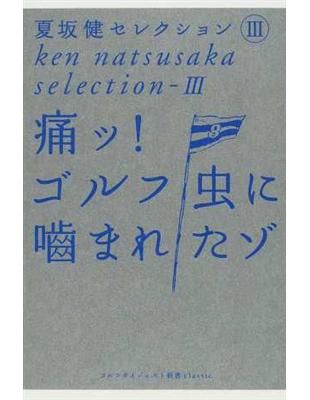 夏坂健セレクション Ⅲ
ken natsusaka
selection-Ⅲ
痛ッ!
ゴルフ虫に
噛まれたゾ
9
ゴルフダイジェスト新書classic